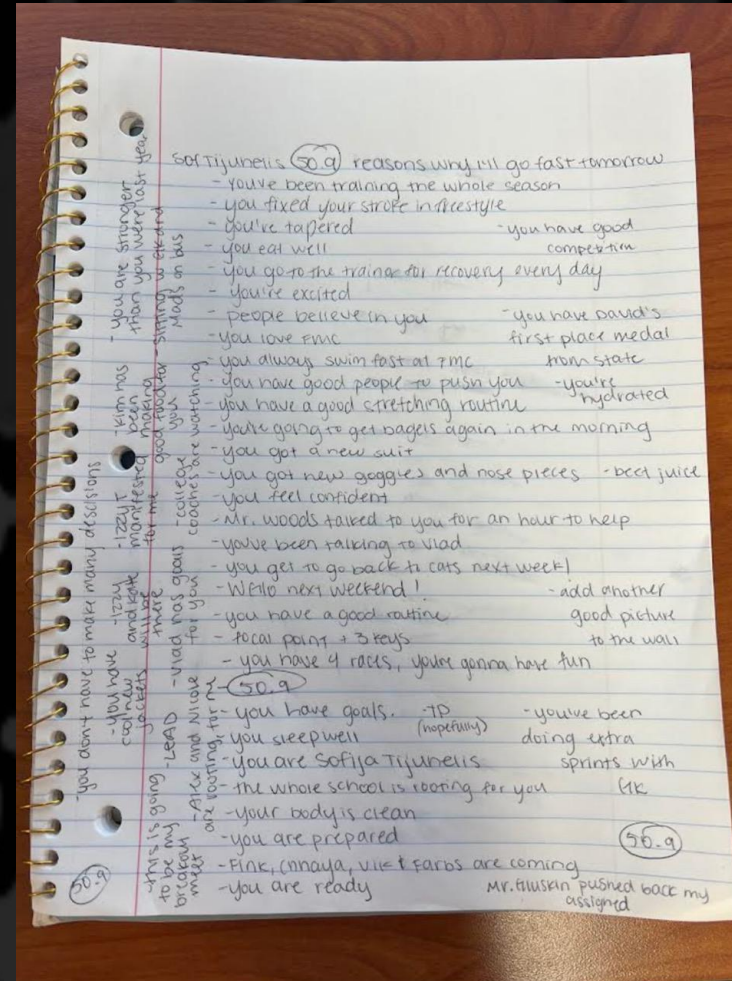 Sof Tijunelis 50.9 reasons why I'll go fast tomorrow
- you've been training the whole season
- you fixed your stroke in freestyle
- you're tapered
- you eat well
- you go to the trainer for recovery every day
- you're excited
- people believe in you
- you love FMC
- you always swim fast at FMC
- you have good people to push you
- you have a good stretching routine
- you're going to get bagels again in the morning
- you got a new suit
- you got new goggles and nose pieces
- you feel confident
- Mr. Woods talked to you for an hour to help
- you've been talking to Vlad
- you get to go back to cats next week!
- next weekend!
- you have a good routine
- focal point + 3 keys
- you have 4 races, you're gonna have fun
- 50.9
- you have goals.
- you sleep well
- you are Sofija Tijunelis
- the whole school is rooting for you
- your body is clean
- you are prepared
- Fink, & Farbs are coming
- you are ready
- you have good
competition
- you have David's
first place medal
from state
- you're
hydrated
- beet juice
- add another
good picture
to the wall
- TP
(hopefully)
- you've been
doing extra
sprints with
GK
50.9
pushed back my
assigned
- you don't have to make many descisions
- you are stronger
than you were last year
- Kim has
been
making
good food for
you
- sitting w/ EK and
Mads on bus
- Izzy T
manifested
for me
- college
coaches are watching
- you have
cool new
jackets
- Izzy
and Kate
will be
there
- Vlad has goals
for you
- this is going
to be my
breakout
meet
- LEAD
- Alex and Nicole
are rooting for me
50.9